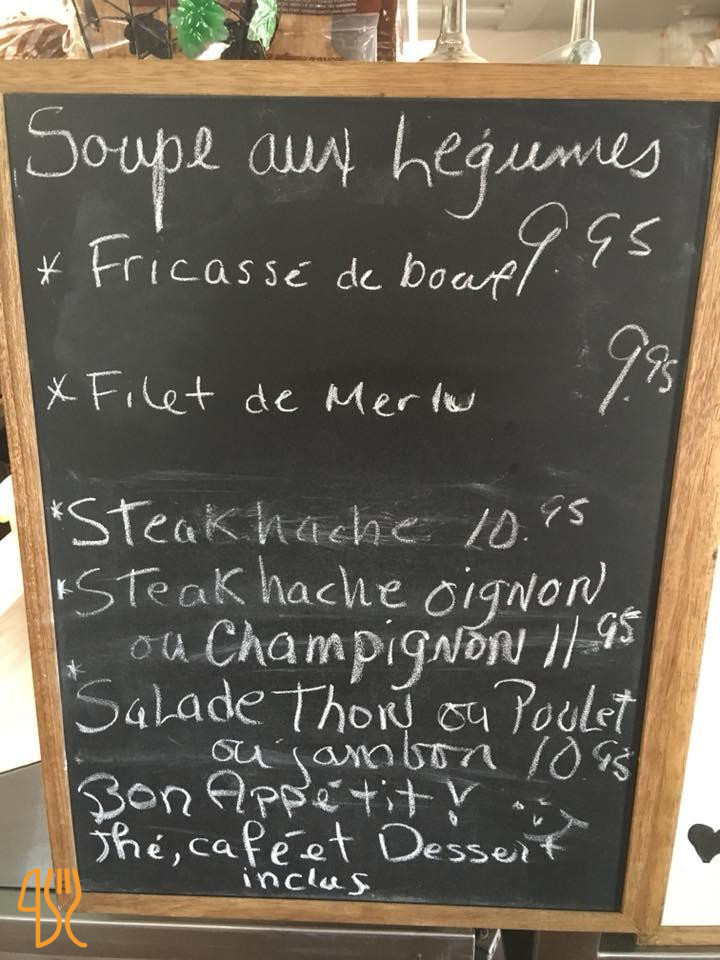 Soupe aux Légumes
* Fricassé de boeuf 9.95
* Filet de Merlu 9.95
* Steak hache 10.95
* Steak hache oignon
ou Champignon 11.95
* Salade Thon ou Poulet
ou jambon 10.95
Bon Appétit !
Thé, café et Dessert
inclus